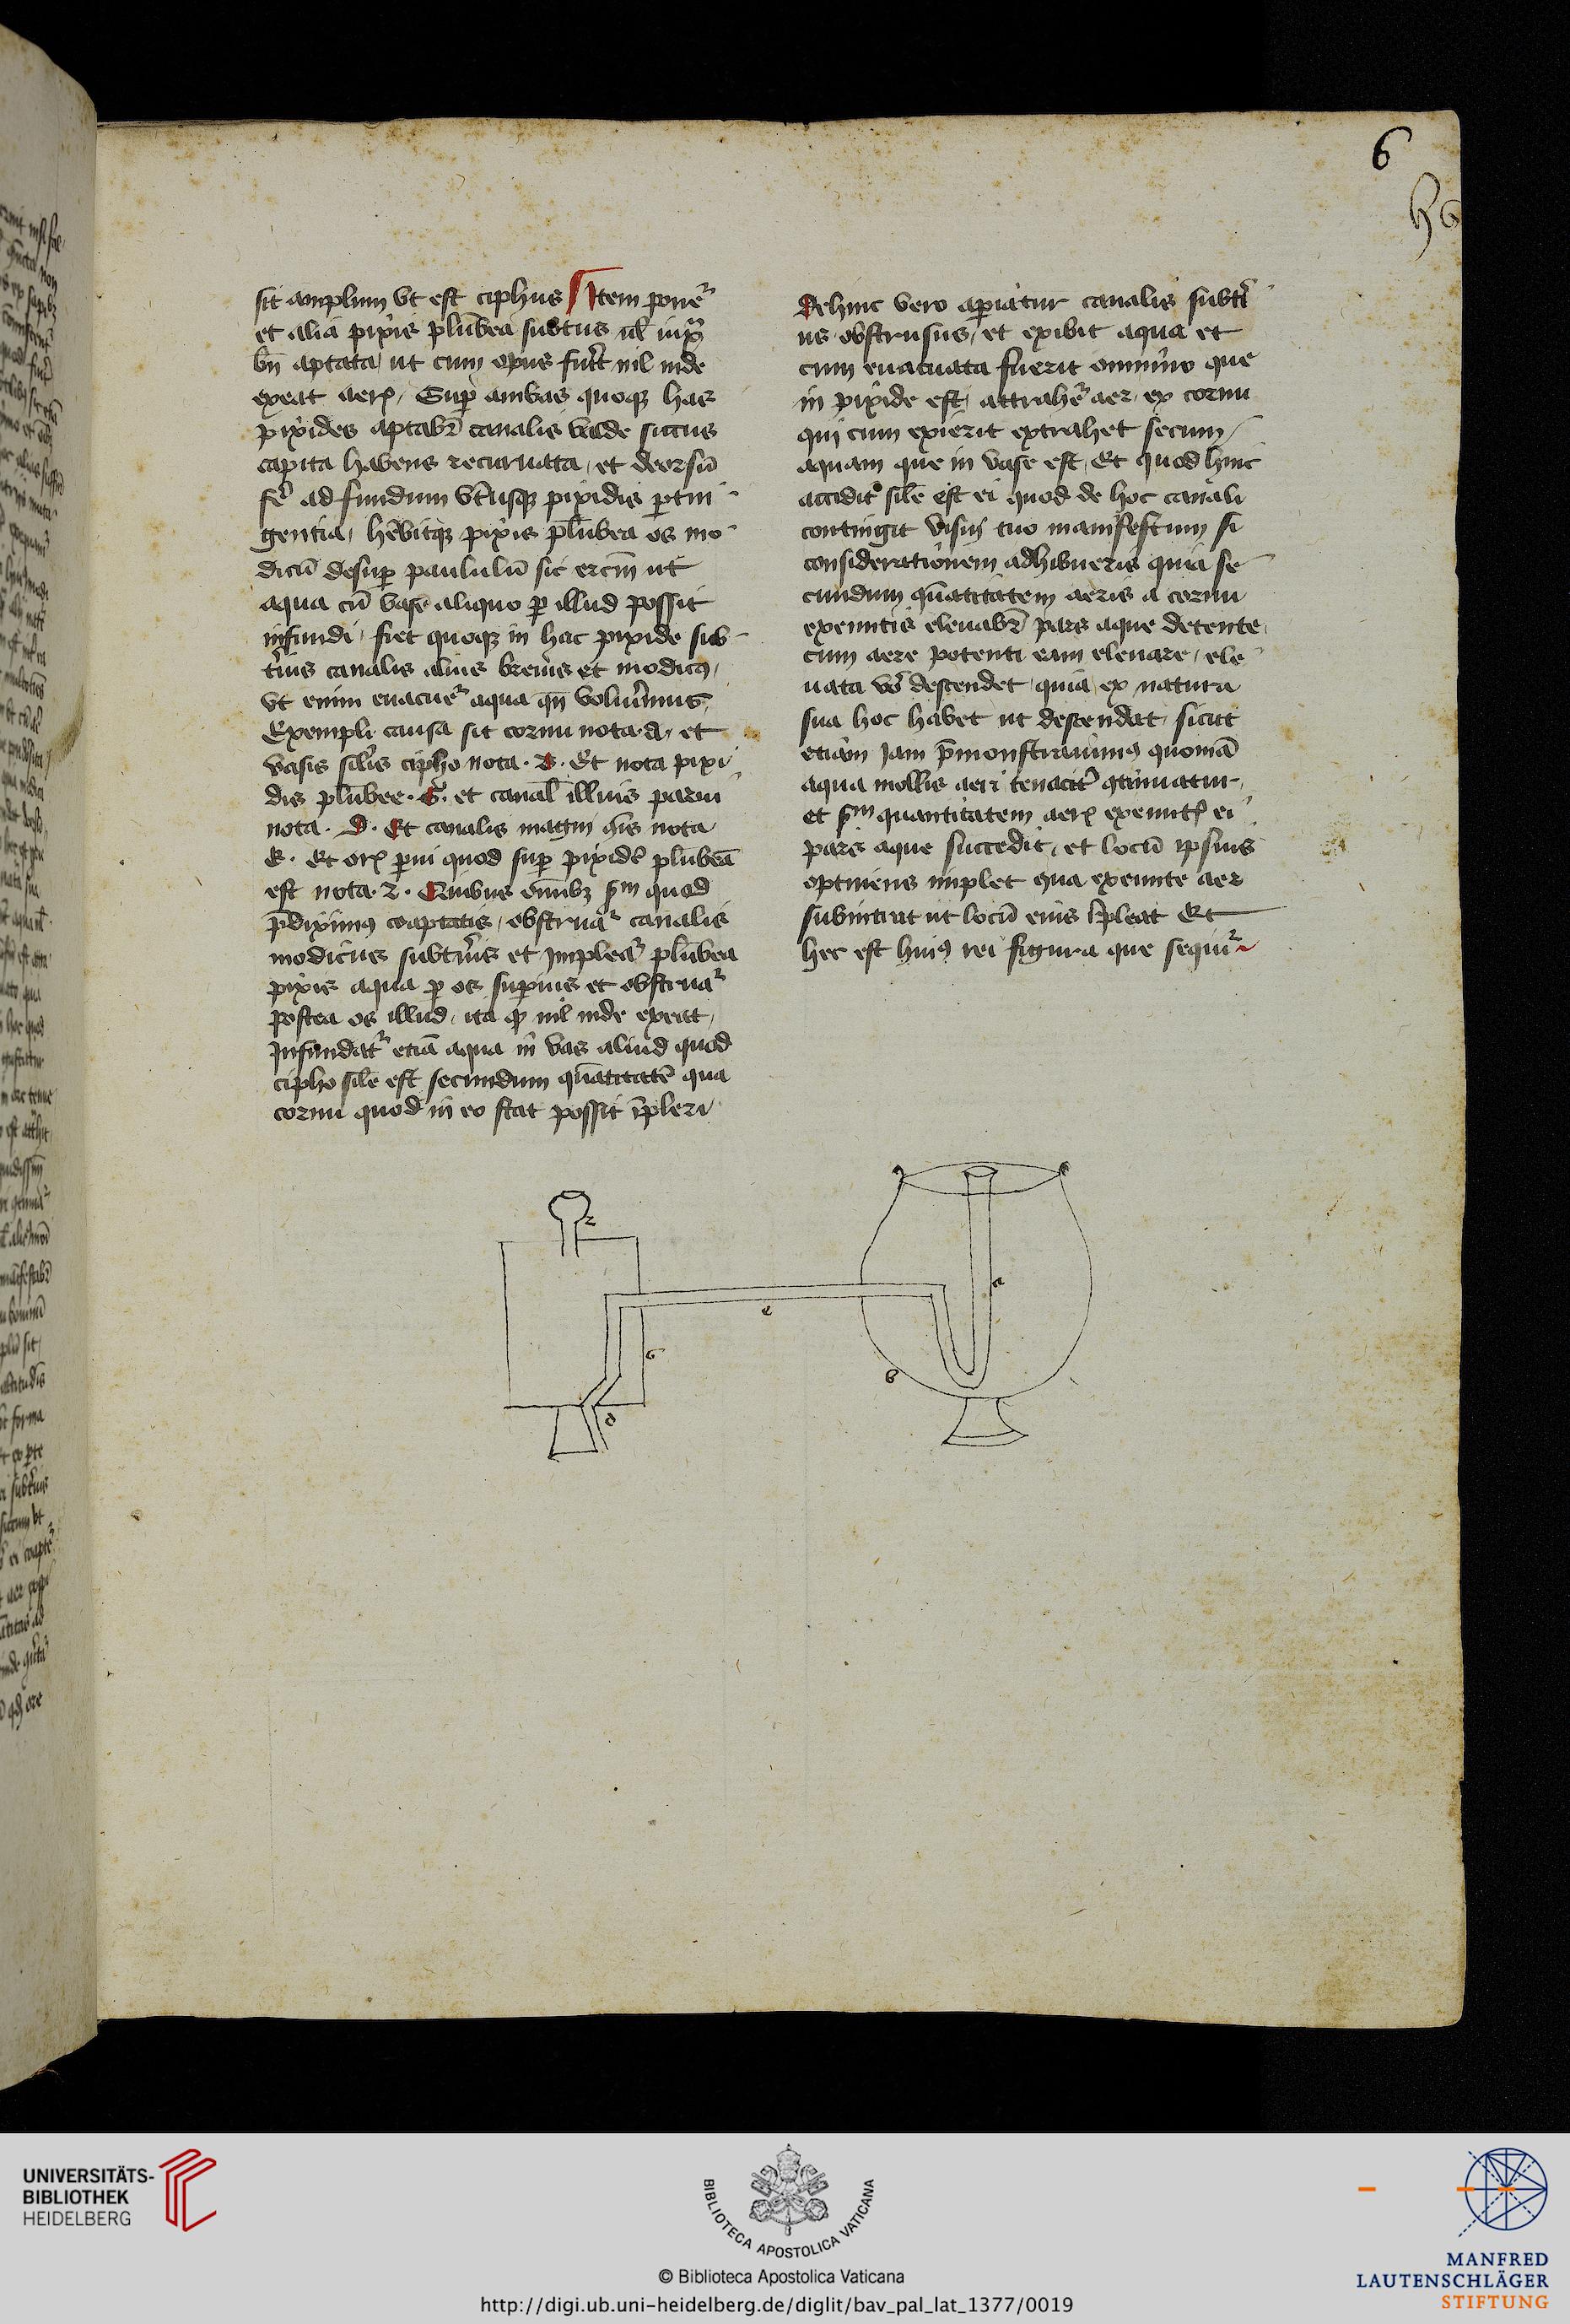 6
h6
sit amplum vt est ciphus Item ponet᷑
et alia pixis plu̅bea subtus ul̅ iuxᷓ
bn̅ aptata ut cum opus fuĩt nil inde
exeat aerꝭ Suꝑ ambas quoqꝫ has
pixides aptab᷑ canalis valde siccus
capita habens recuruata et deorsu̅
fe᷑ ad fundum vt᷑usqꝫ pixidis ꝑtin
gentia he̅bitqꝫ pixis plu̅bea os mo
dicu̅ desuꝑ paululu̅ sic
aqua cu̅ vase aliquo ꝑ illud possit
infundi fiet quoqꝫ in hac pixide sub
t᷑ius canalis alius breuis et modicꝰ
vt enim euacuet᷑ aqua qn̅ volu᷑imus
Exempli causa sit cornu nota a et
vasis sil᷑is cipho nota B Et nota pixi
dis plu̅bee G et canal̅ illius parui
nota D Et canalis magni nota
E Et orꝭ ꝑui quod suꝑ pixide̅ plu̅bea̅
est nota Z Quibus om̅ibꝫ ẜm quod
p̅diximꝰ coaptatis obstruat᷑ canalis
modicus subt᷑ius et impleat᷑ plu̅bea
pixis aqua ꝑ os suꝑius et obstruat᷑
postea os illud ita ꝙ nil inde exeat
Infundat᷑ etia̅ aqua in vas aliud quod
cipho sil̅e est secundum qua̅titate̅ qua
cornu quod in eo stat possit i̅pleri
Dehinc vero aperiatur canalis subt᷑i
us obstrusus et exibit aqua et
cum euacuata fuerit omnino que
in pixide est attrahet᷑ aer ex cornu
qui cum exierit extrahet secum
aquam que in vase est Et quod hinc
accidit sil̅e est ei quod de hoc canali
contingit visui tuo manifestum si
considerationem adhibueris quia se
cundum qua̅titatem aeris a cornu
exeuntis eleuab᷑ pars aque detente
cum aere potenti eam eleuare ele
uata vo̅ descendet quia ex natura
sua hoc habet ut descendat sicut
etiam iam p̅monstrauimꝰ quonia̅
aqua mollis aeri tenacit᷑ ꝯtinuatur
et ẜm quantitatem aerꝭ exeuntꝭ ei
pars aque succedit et locu̅ ipsius
optinens implet qua exeunte aer
subintrat ut locu̅ eius i̅pleat Et
hec est huiꝰ rei figura que sequit᷑
z
a
e
G
B
d
UNIVERSITÄTS-
BIBLIOTHEK
HEIDELBERG
BIBLIOTECA APOSTOLICA VATICANA
© Biblioteca Apostolica Vaticana
http://digi.ub.uni-heidelberg.de/diglit/bav_pal_lat_1377/0019
MANFRED
LAUTENSCHLÄGER
STIFTUNG